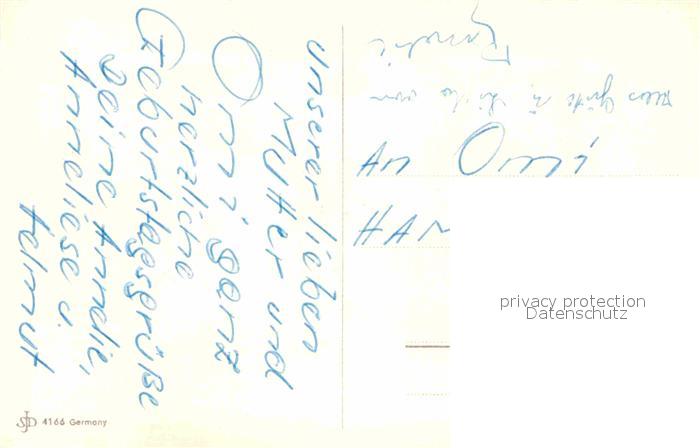 unserer lieben
Mutter und
Omi ganz
herzliche
Geburtstagsgrüße
Deine Anndie,
Anneliese u.
Helmut
Alles Gute
von
An Omi
HAN
privacy protection
Datenschutz
JSD 4166 Germany